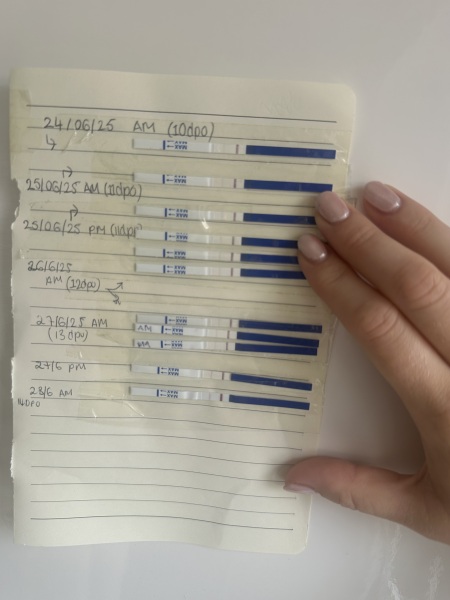 24/06/25 AM (10dpo)
25/06/25 AM (11dpo)
25/06/25 PM (11dpo)
26/6/25
AM (12dpo)
27/6/25 AM
(13dpo)
27/6 PM
28/6 AM
14DPO